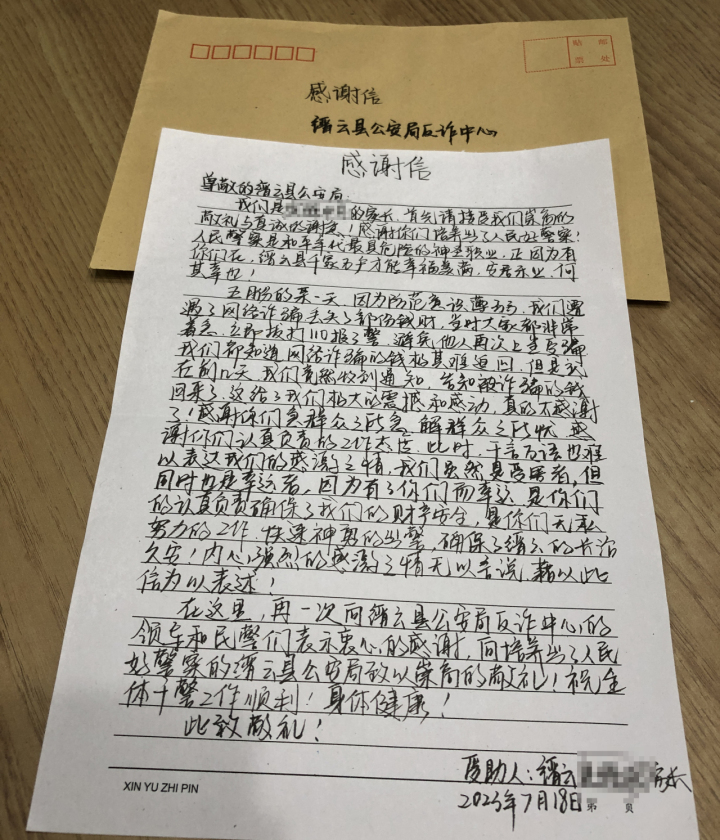 贴 邮
票 处
感谢信
缙云县公安局反诈中心
感谢信
尊敬的缙云县公安局:
我们是的家长,首先请接受我们崇高的
敬礼与真诚的谢意!感谢你们培养出了人民好警察!
人民警察是和平年代最具危险的神圣职业,正因为有
你们在,缙云县千家万户才能幸福美满,安居乐业,何
其幸也!
五月份的某一天,因为防范意识薄弱,我们遭
遇了网络诈骗丢失了部份钱财,当时大家都非常
着急,立即拨打110报了警,避免他人再次上当受骗
我们都知道网络诈骗的钱极其难追回,但是就
在前几天,我们竟然收到通知,告知被诈骗的钱
回来了,这给了我们极大的震撼和感动,真的不感谢
了!感谢你们急群众之所急,解群众之所忧,感
谢你们认真负责的工作态度,此时,千言万语也难
以表达我们的感激之情,我们虽然是受害者,但
同时也是幸运者,因为有了你们而幸运,是你们
的认真负责确保了我们的财产安全,是你们无私
努力的工作,快速神勇的出警,确保了缙云的长治
久安!内心强烈的感激之情无以言说,藉以此
信为以表述!
在这里,再一次向缙云县公安局反诈中心的
领导和民警们表示衷心的感谢,向培养出了人民
好警察的缙云县公安局致以崇高的敬礼!祝全
体干警工作顺利!身体健康!
此致敬礼!
受助人:缙云家长
2023年7月18日
第 页
XIN YU ZHI PIN